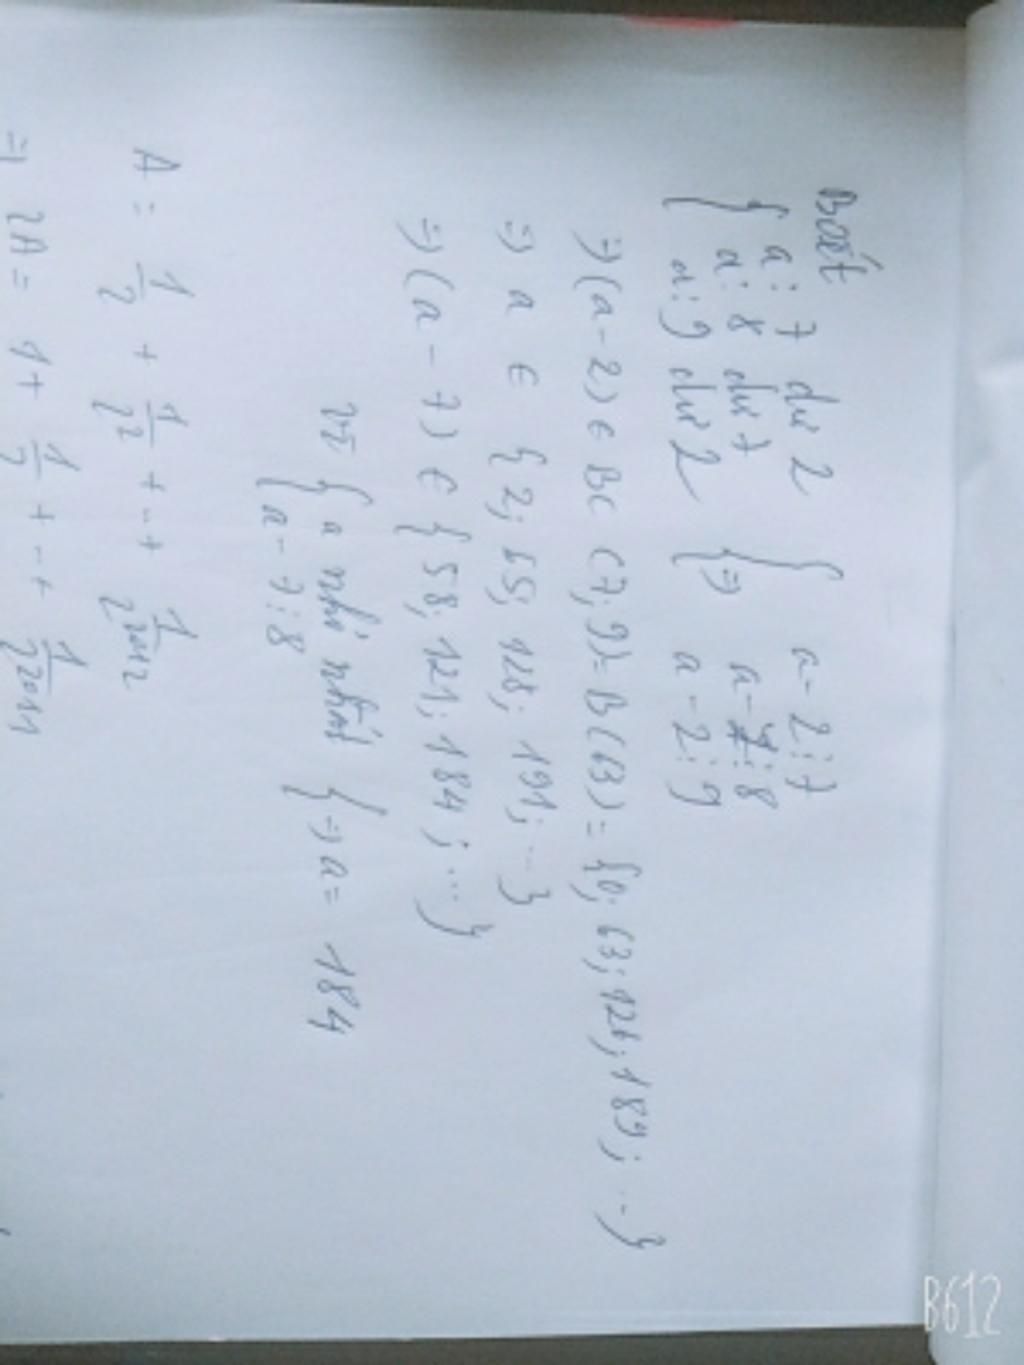 { a ⋮ 7 dư 2
a ⋮ 8 dư 7
a ⋮ 9 dư 2 } => a - 2 ⋮ 7
a - 7 ⋮ 8
a - 2 ⋮ 9
=> (a - 2) ∈ BC (7; 9) = B(63) = {0; 63; 126; 189; ...}
=> a ∈ { 2; 65; 128; 191; ... }
=> (a - 7) ∈ { 58; 121; 184; ... }
vì { a nhỏ nhất
a - 7 ⋮ 8 } => a = 184
A = 1/2 + 1/2² + ... + 1/2²⁰¹²
=> 2A = 1 + 1/2 + ... + 1/2²⁰¹¹
B612